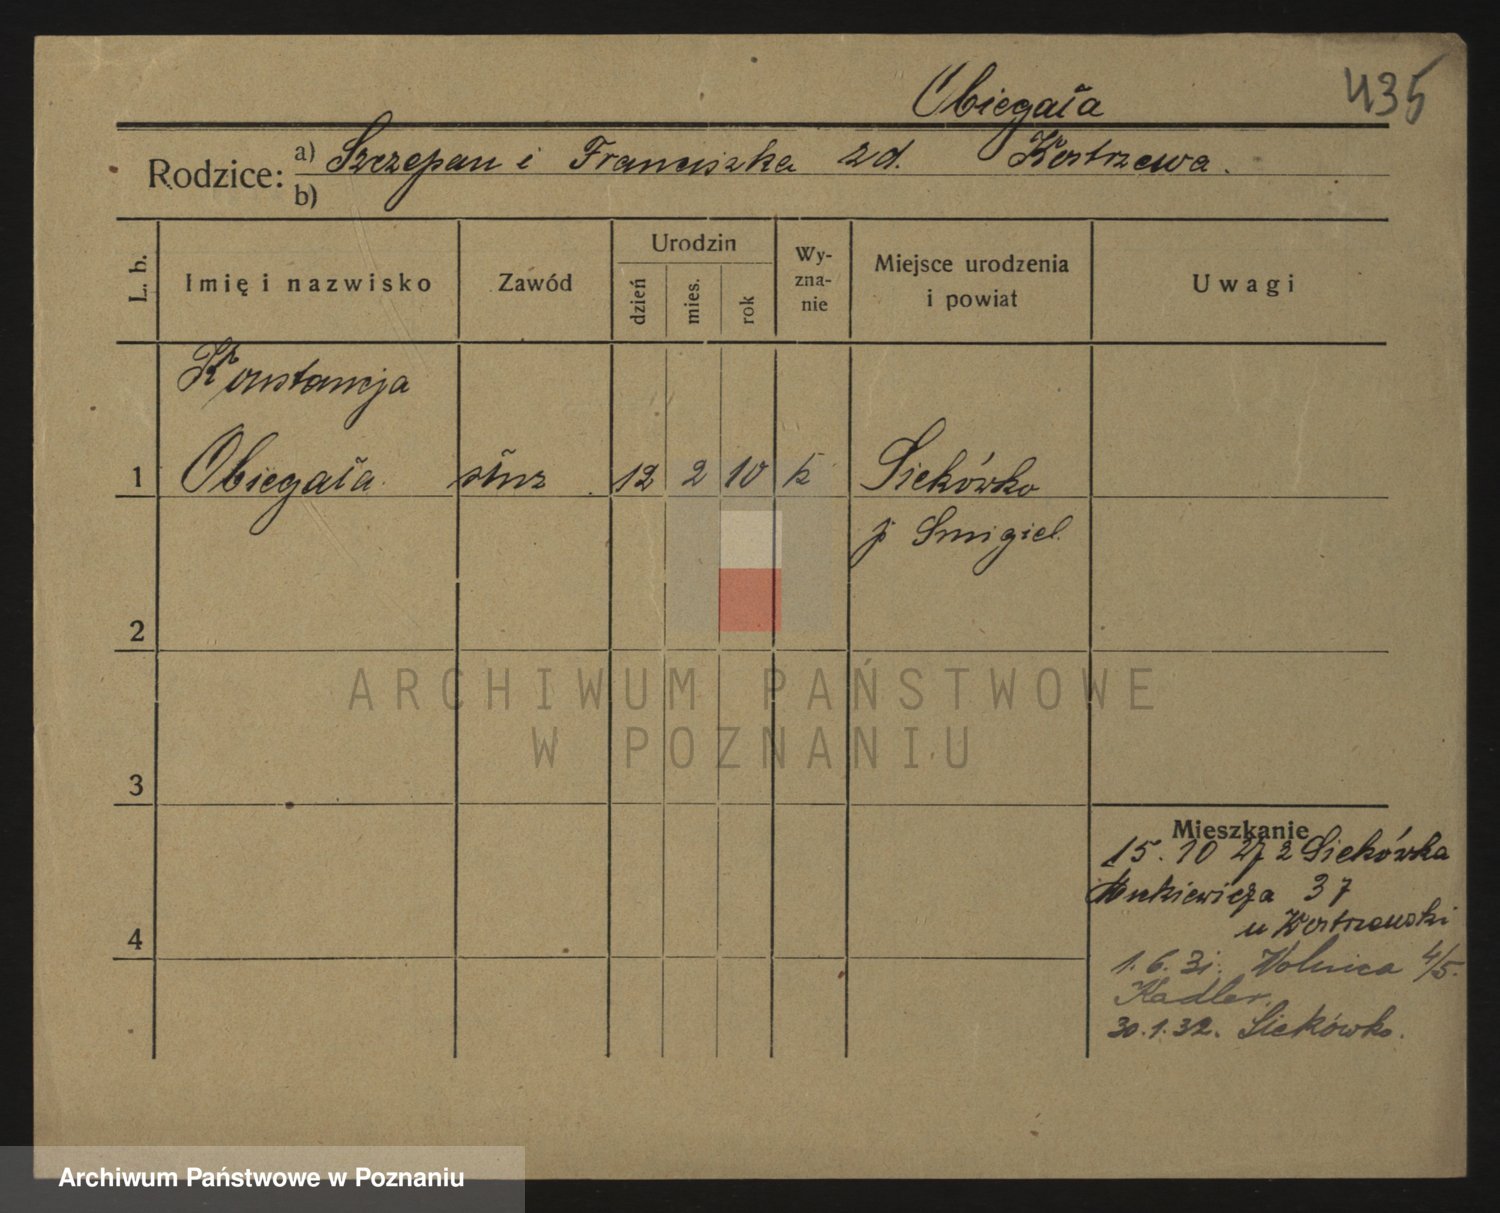 435
Obiegała
Rodzice: a) Szczepan i Franciszka zd. Kostrzewa.
b)
L. b. Imię i nazwisko Zawód Urodzin dzień mies. rok Wyznanie Miejsce urodzenia i powiat Uwagi
Konstancja
1 Obiegała służ 12 2 10 k Siekówko
p Smigiel
2
ARCHIWUM PAŃSTWOWE
W POZNANIU
3
Mieszkanie
15. 10 27 z Siekówka
37
u Kostrzewski
1. 6. 31. Wolnica 4/5.
Kadler.
4
30. 1. 32. Siekówko.
Archiwum Państwowe w Poznaniu